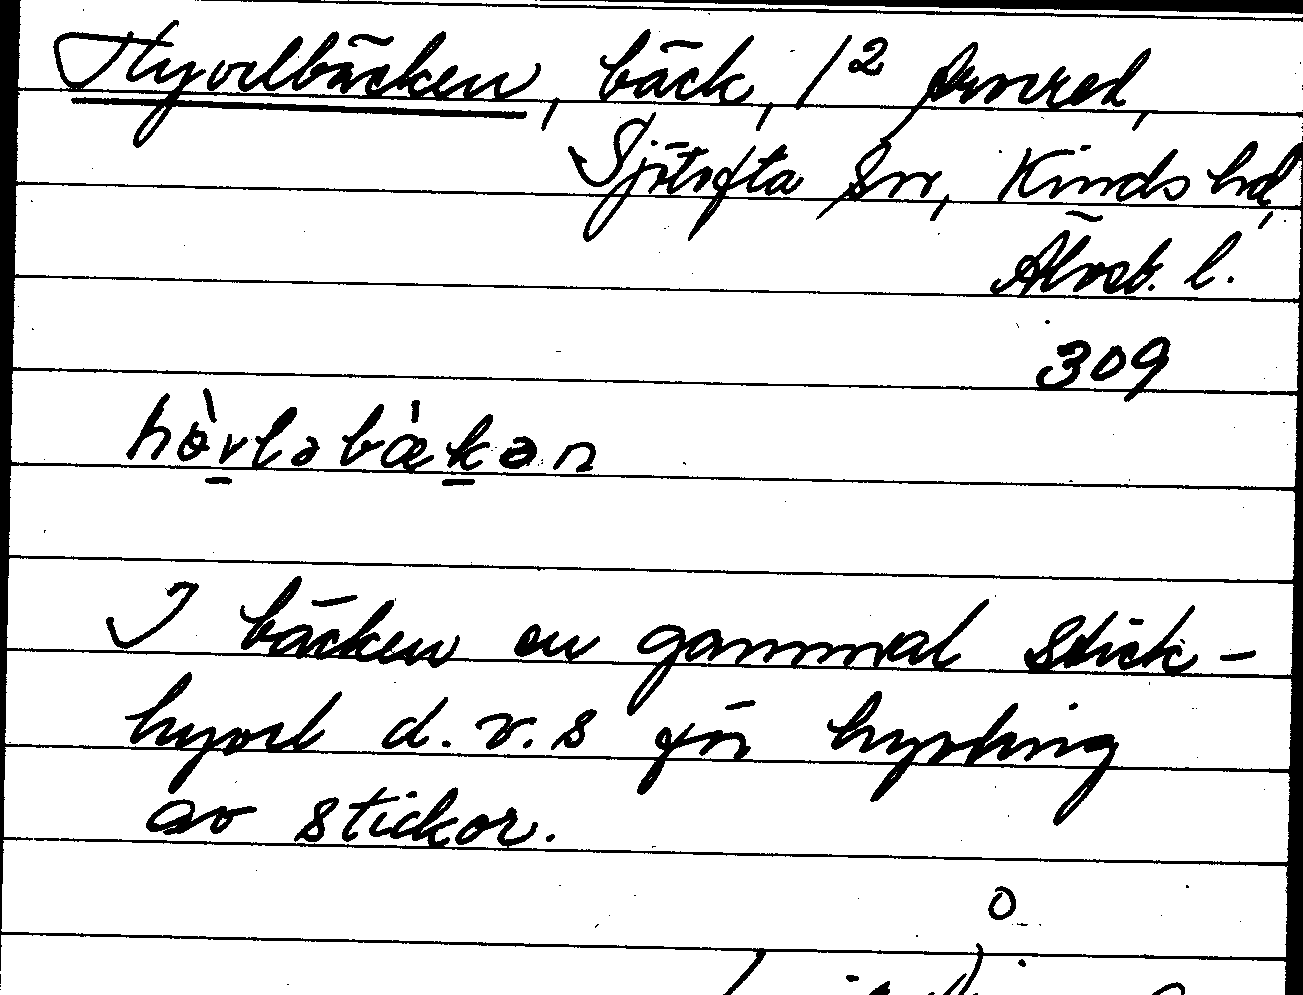 Hyvelbäcken, bäck, 1² Ormred,
Sjötofta Sn, Kinds hd,
Älvsb. l.
309
hö̀vləbækən
I bäcken en gammal stick-
hyvel d.v.s för hyvling
av stickor.